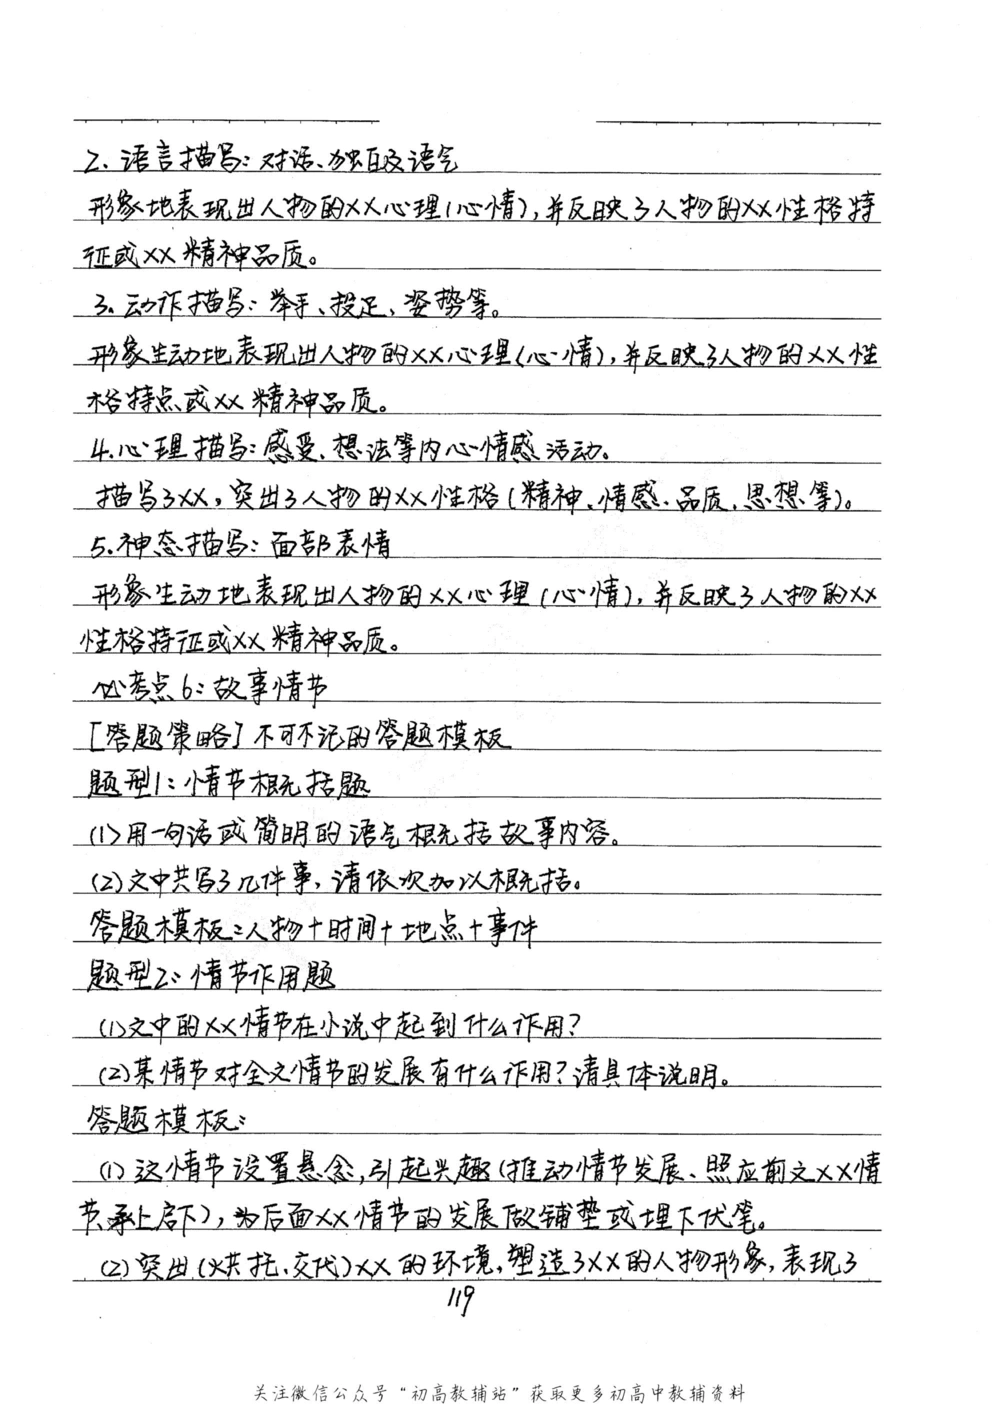 2. 语言描写：对话、独白及语气
形象地表现出人物的XX心理(心情)，并反映了人物的XX性格特
征或XX精神品质。
3. 动作描写：举手、投足、姿势等。
形象生动地表现出人物的XX心理(心情)，并反映了人物的XX性
格特点或XX精神品质。
4.心理描写：感受、想法等内心情感活动。
描写了XX，突出了人物的XX性格(精神、情感、品质、思想等)。
5.神态描写：面部表情
形象生动地表现出人物的XX心理(心情)，并反映了人物的XX
性格特征或XX精神品质。
考点6：故事情节
[答题策略]不可不记的答题模板
题型1：情节概括题
(1)用一句话或简明的语气概括故事内容。
(2)文中共写了几件事，请依次加以概括。
答题模板：人物+时间+地点+事件
题型2：情节作用题
(1)文中的XX情节在小说中起到什么作用？
(2)某情节对全文情节的发展有什么作用？请具体说明。
答题模板：
(1)这情节设置悬念，引起兴趣(推动情节发展、照应前文XX情
节、承上启下)，为后面XX情节的发展做铺垫或埋下伏笔。
(2)突出(烘托、交代)XX的环境，塑造了XX的人物形象，表现了
119
关注微信公众号“初高教辅站”获取更多初高中教辅资料